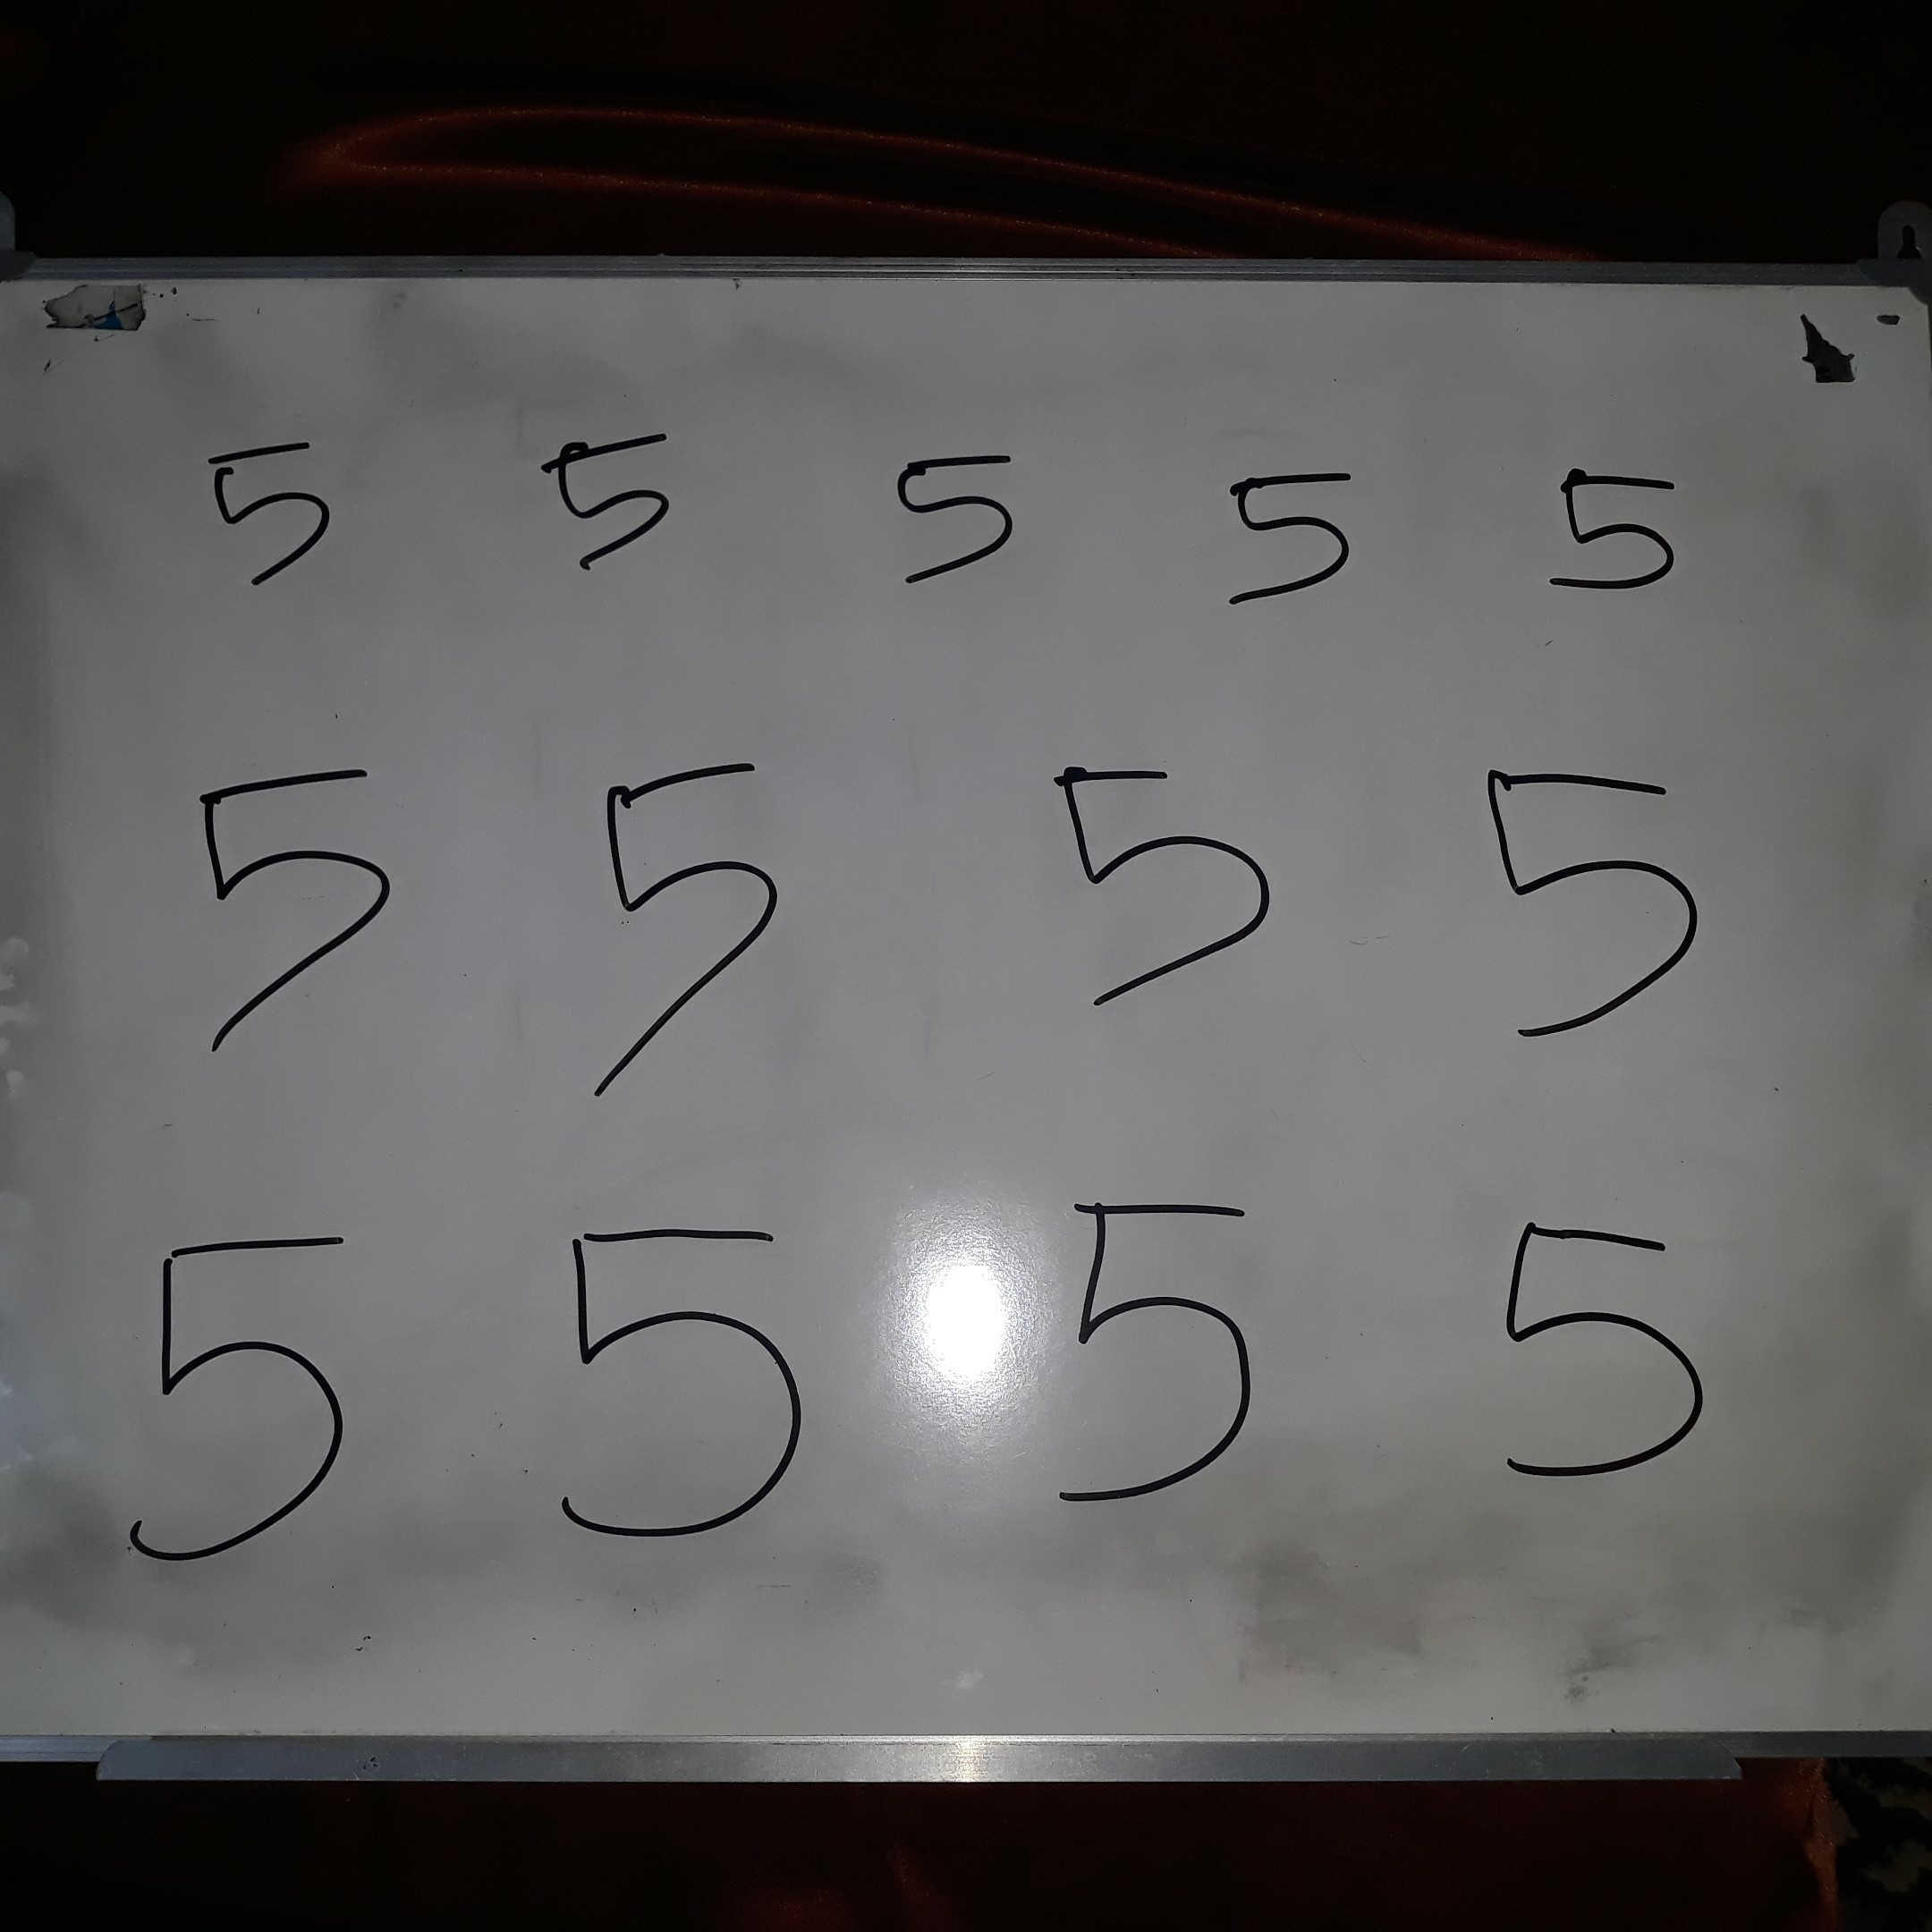 5 5 5 5 5
5 5 5 5
5 5 5 5